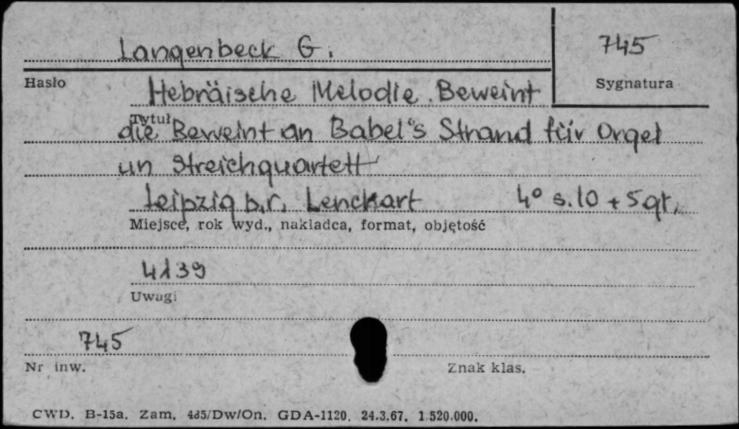 Langenbeck G.
745
Hasło
Sygnatura
Hebräische Melodie. Beweint
Tytuł
die Beweint an Babel's Strand für Orgel
un Streichquartett
Leipzig b.r. Lenckart 4° s.10 + 5 gt.
Miejsce, rok wyd., nakładca, format, objętość
4139
Uwagi
745
Nr inw.
Znak klas.
CWD. B-15a. Zam. 485/Dw/On. GDA-1120. 24.3.67. 1.520.000.